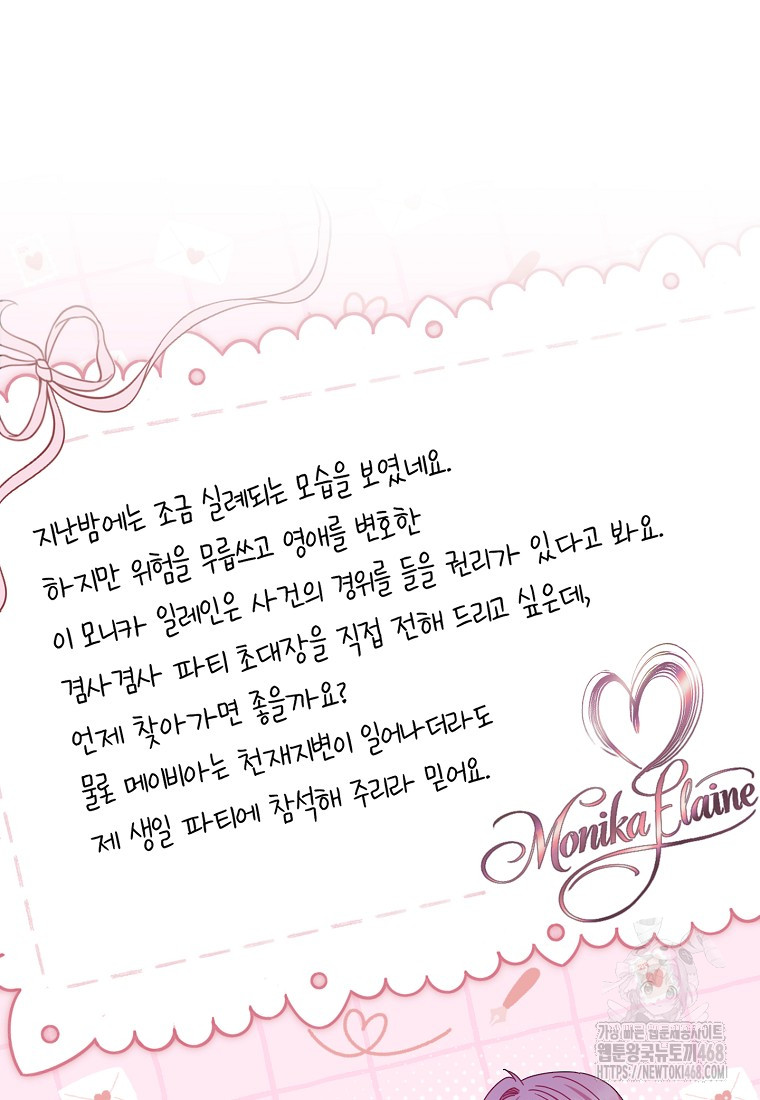 지난밤에는 조금 실례되는 모습을 보였네요.
하지만 위험을 무릅쓰고 영애를 변호한
이 모니카 일레인은 사건의 경위를 들을 권리가 있다고 봐요.
겸사겸사 파티 초대장을 직접 전해 드리고 싶은데,
언제 찾아가면 좋을까요?
물론 메이비아는 천재지변이 일어나더라도
제 생일 파티에 참석해 주리라 믿어요.
Monika Elaine
가장 빠른 웹툰제공사이트
웹툰왕국뉴토끼468
HTTPS://NEWTOKI468.COM